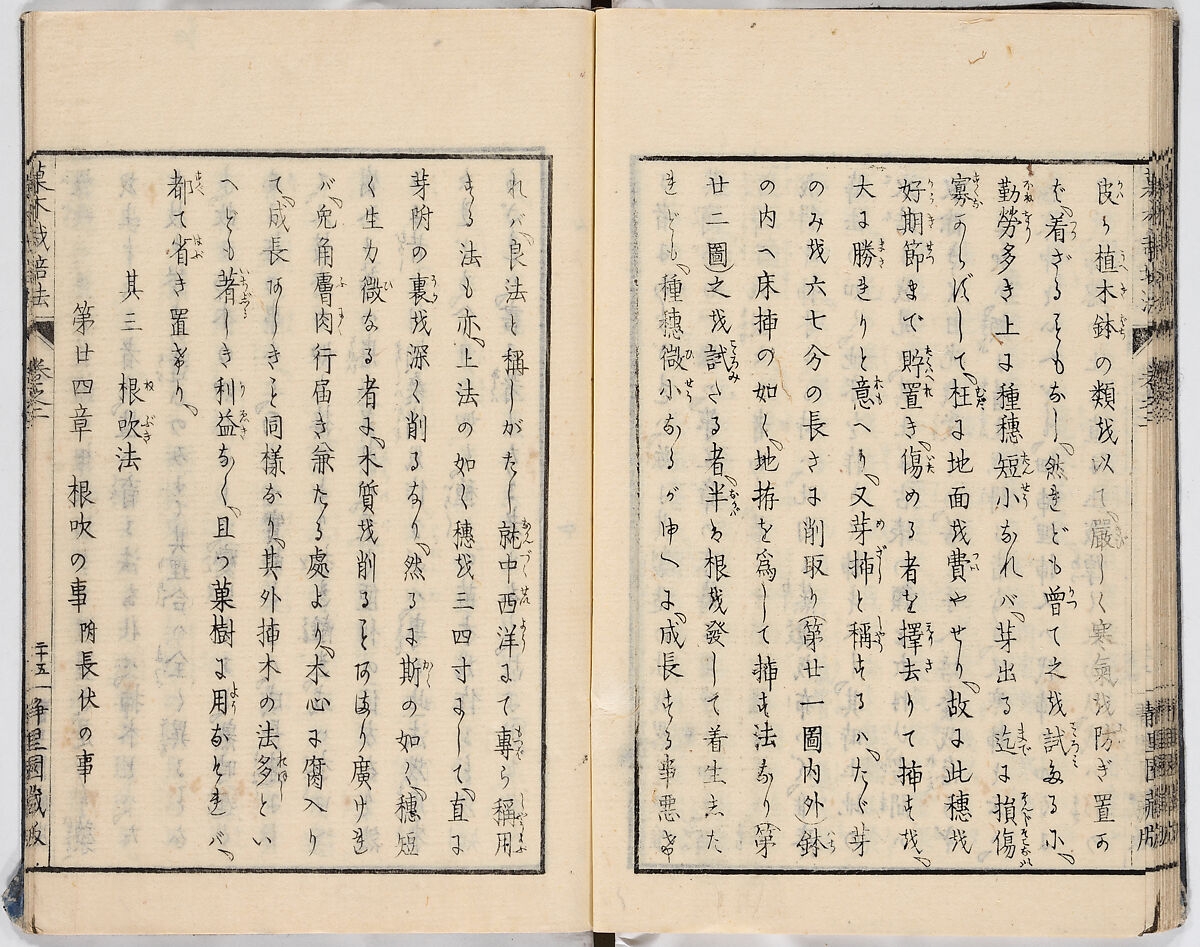 皮り植木鉢の類或以て、嚴しく寒氣或防ぎ置可
ば、着ざることもなし、然れども曾て之或試みるに、
勤勞多き上に種穗短小なれバ、芽出る迄に損傷
寡からずして、枉に地面或費やせり、故に此穗或
好期節まで貯置き、傷める者を擇去りて挿す或、
大に勝れりと意へり、又芽挿と稱する八、たゞ芽
のみ或六七分の長さに削取り(第廿一圖内外)鉢
の内へ床挿の如く、地拵を爲して挿す法なり(第
廿二圖)之或試みたる者、半は根或發して着生した
れども、種穗微小なるが由へに、成長する事悪け
れバ、良法と稱しがたし、就中西洋にて專ら稱用
する法も亦、上法の如く穗或三四寸にして、直に
芽附の裏或深く削るなり、然るに斯の如く、穗短
く生力微なる者に、木質或削ることあまり廣けれ
バ、兔角膚肉行届き兼たる處より、木心に腐入り
て、成長あしきこと同樣なり、其外挿木の法多とい
へども著しき利益なく、且つ菓樹に用なければ、
都て省き置けり、
其三 根吹法
第廿四章 根吹の事 附長伏の事
菓木栽培法 卷之二 二十五 静里園藏版